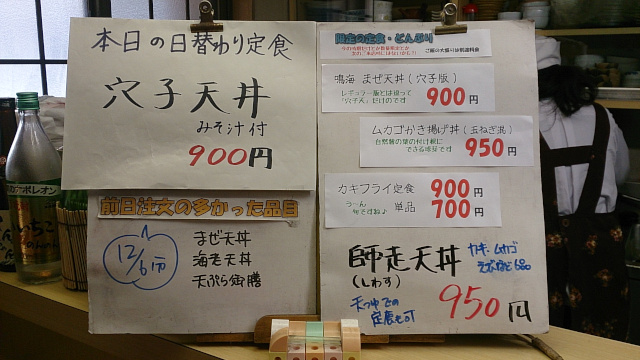 本日の日替わり定食
穴子天丼
みそ汁付
900円
前日注文の多かった品目
12/6分
まぜ天丼
海老天丼
天ぷら御膳
限定の定食・どんぶり
ご飯の大盛りは別途料金
鳴海 まぜ天丼(穴子版)
レギュラー版とは違って
「穴子天」だけのです
900円
ムカゴかき揚げ丼(玉ねぎ混)
自然薯の葉の付け根に
できる球芽です
950円
カキフライ定食 900円
うーん
旬ですね♪
単品 700円
師走天丼
(しわす)
カキ・ムカゴ
天つゆでの
定食も可
950円